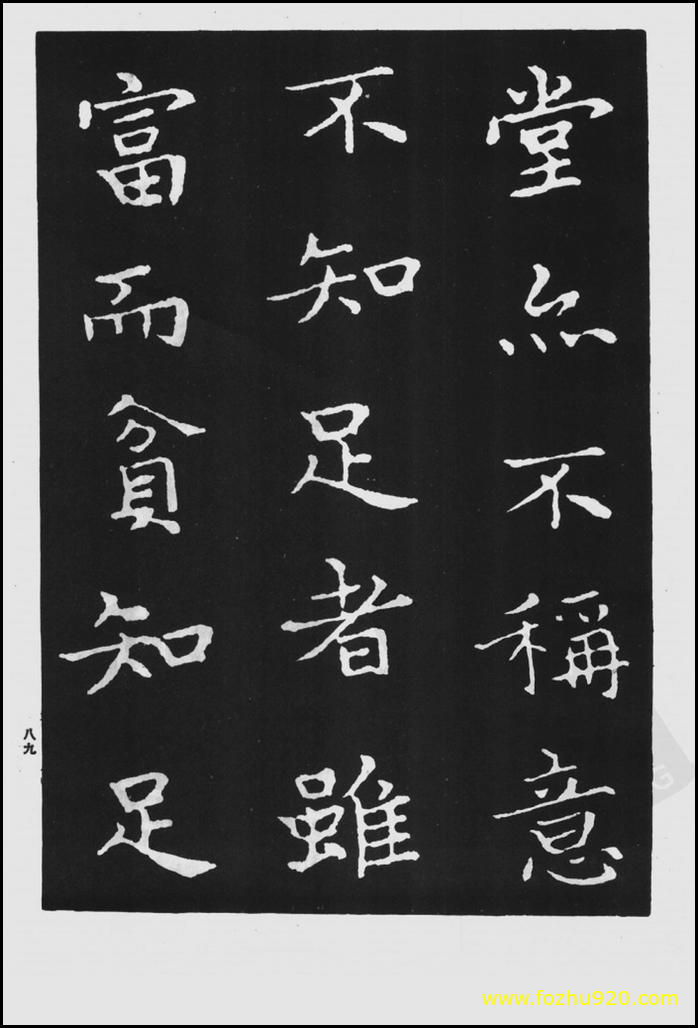 堂亦不稱意
不知足者雖
富而貧知足
八九
www.fozhu920.com